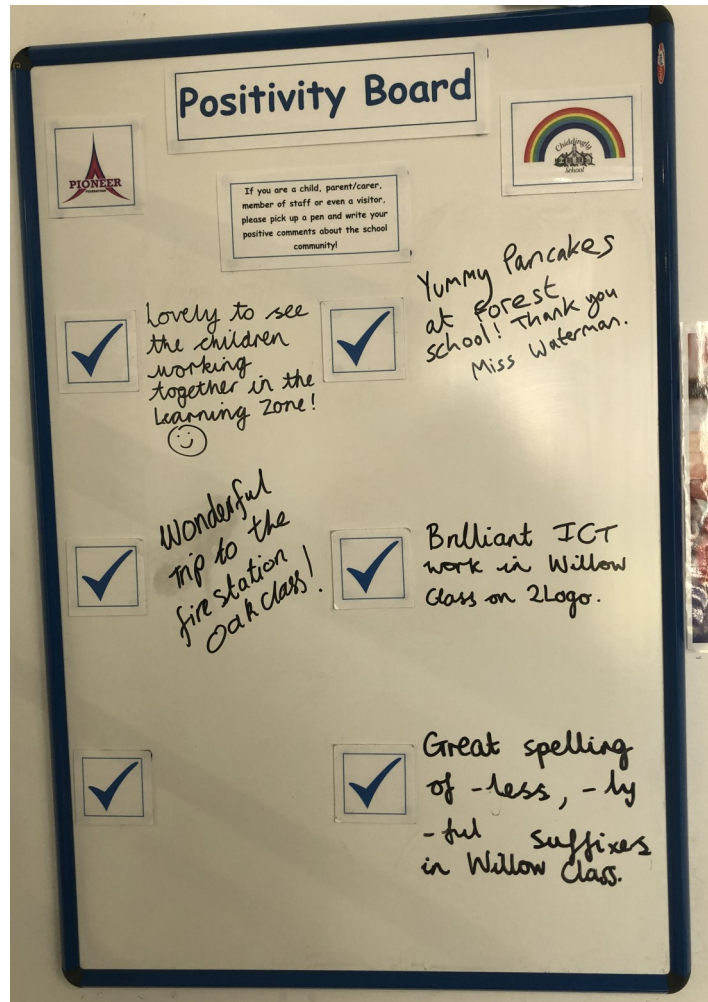 Positivity Board
PIONEER
FEDERATION
Chiddingly
School
If you are a child, parent/carer,
member of staff or even a visitor,
please pick up a pen and write your
positive comments about the school
community!
Lovely to see
the children
working
together in the
Learning Zone!
Yummy Pancakes
at Forest
school! Thank you
Miss Waterman.
Wonderful
Trip to the
fire station
Oak Class!
Brilliant ICT
work in Willow
Class on 2Logo.
Great spelling
of -less, -ly
-ful suffixes
in Willow Class.